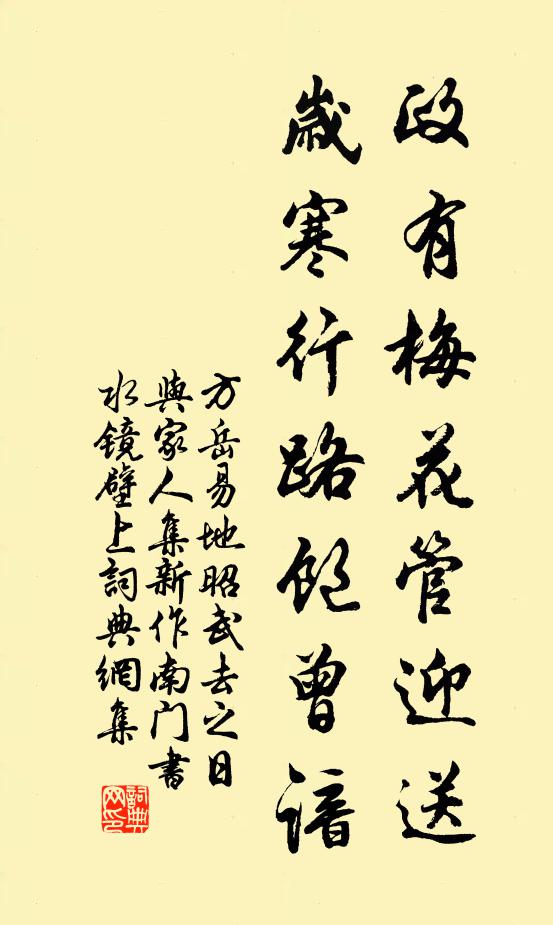 政有梅花管迎送
歲寒行路飽曾諳
方岳易地昭武去之日
與家人集新作南门書
水鏡壁上詞典網集
詞典网印